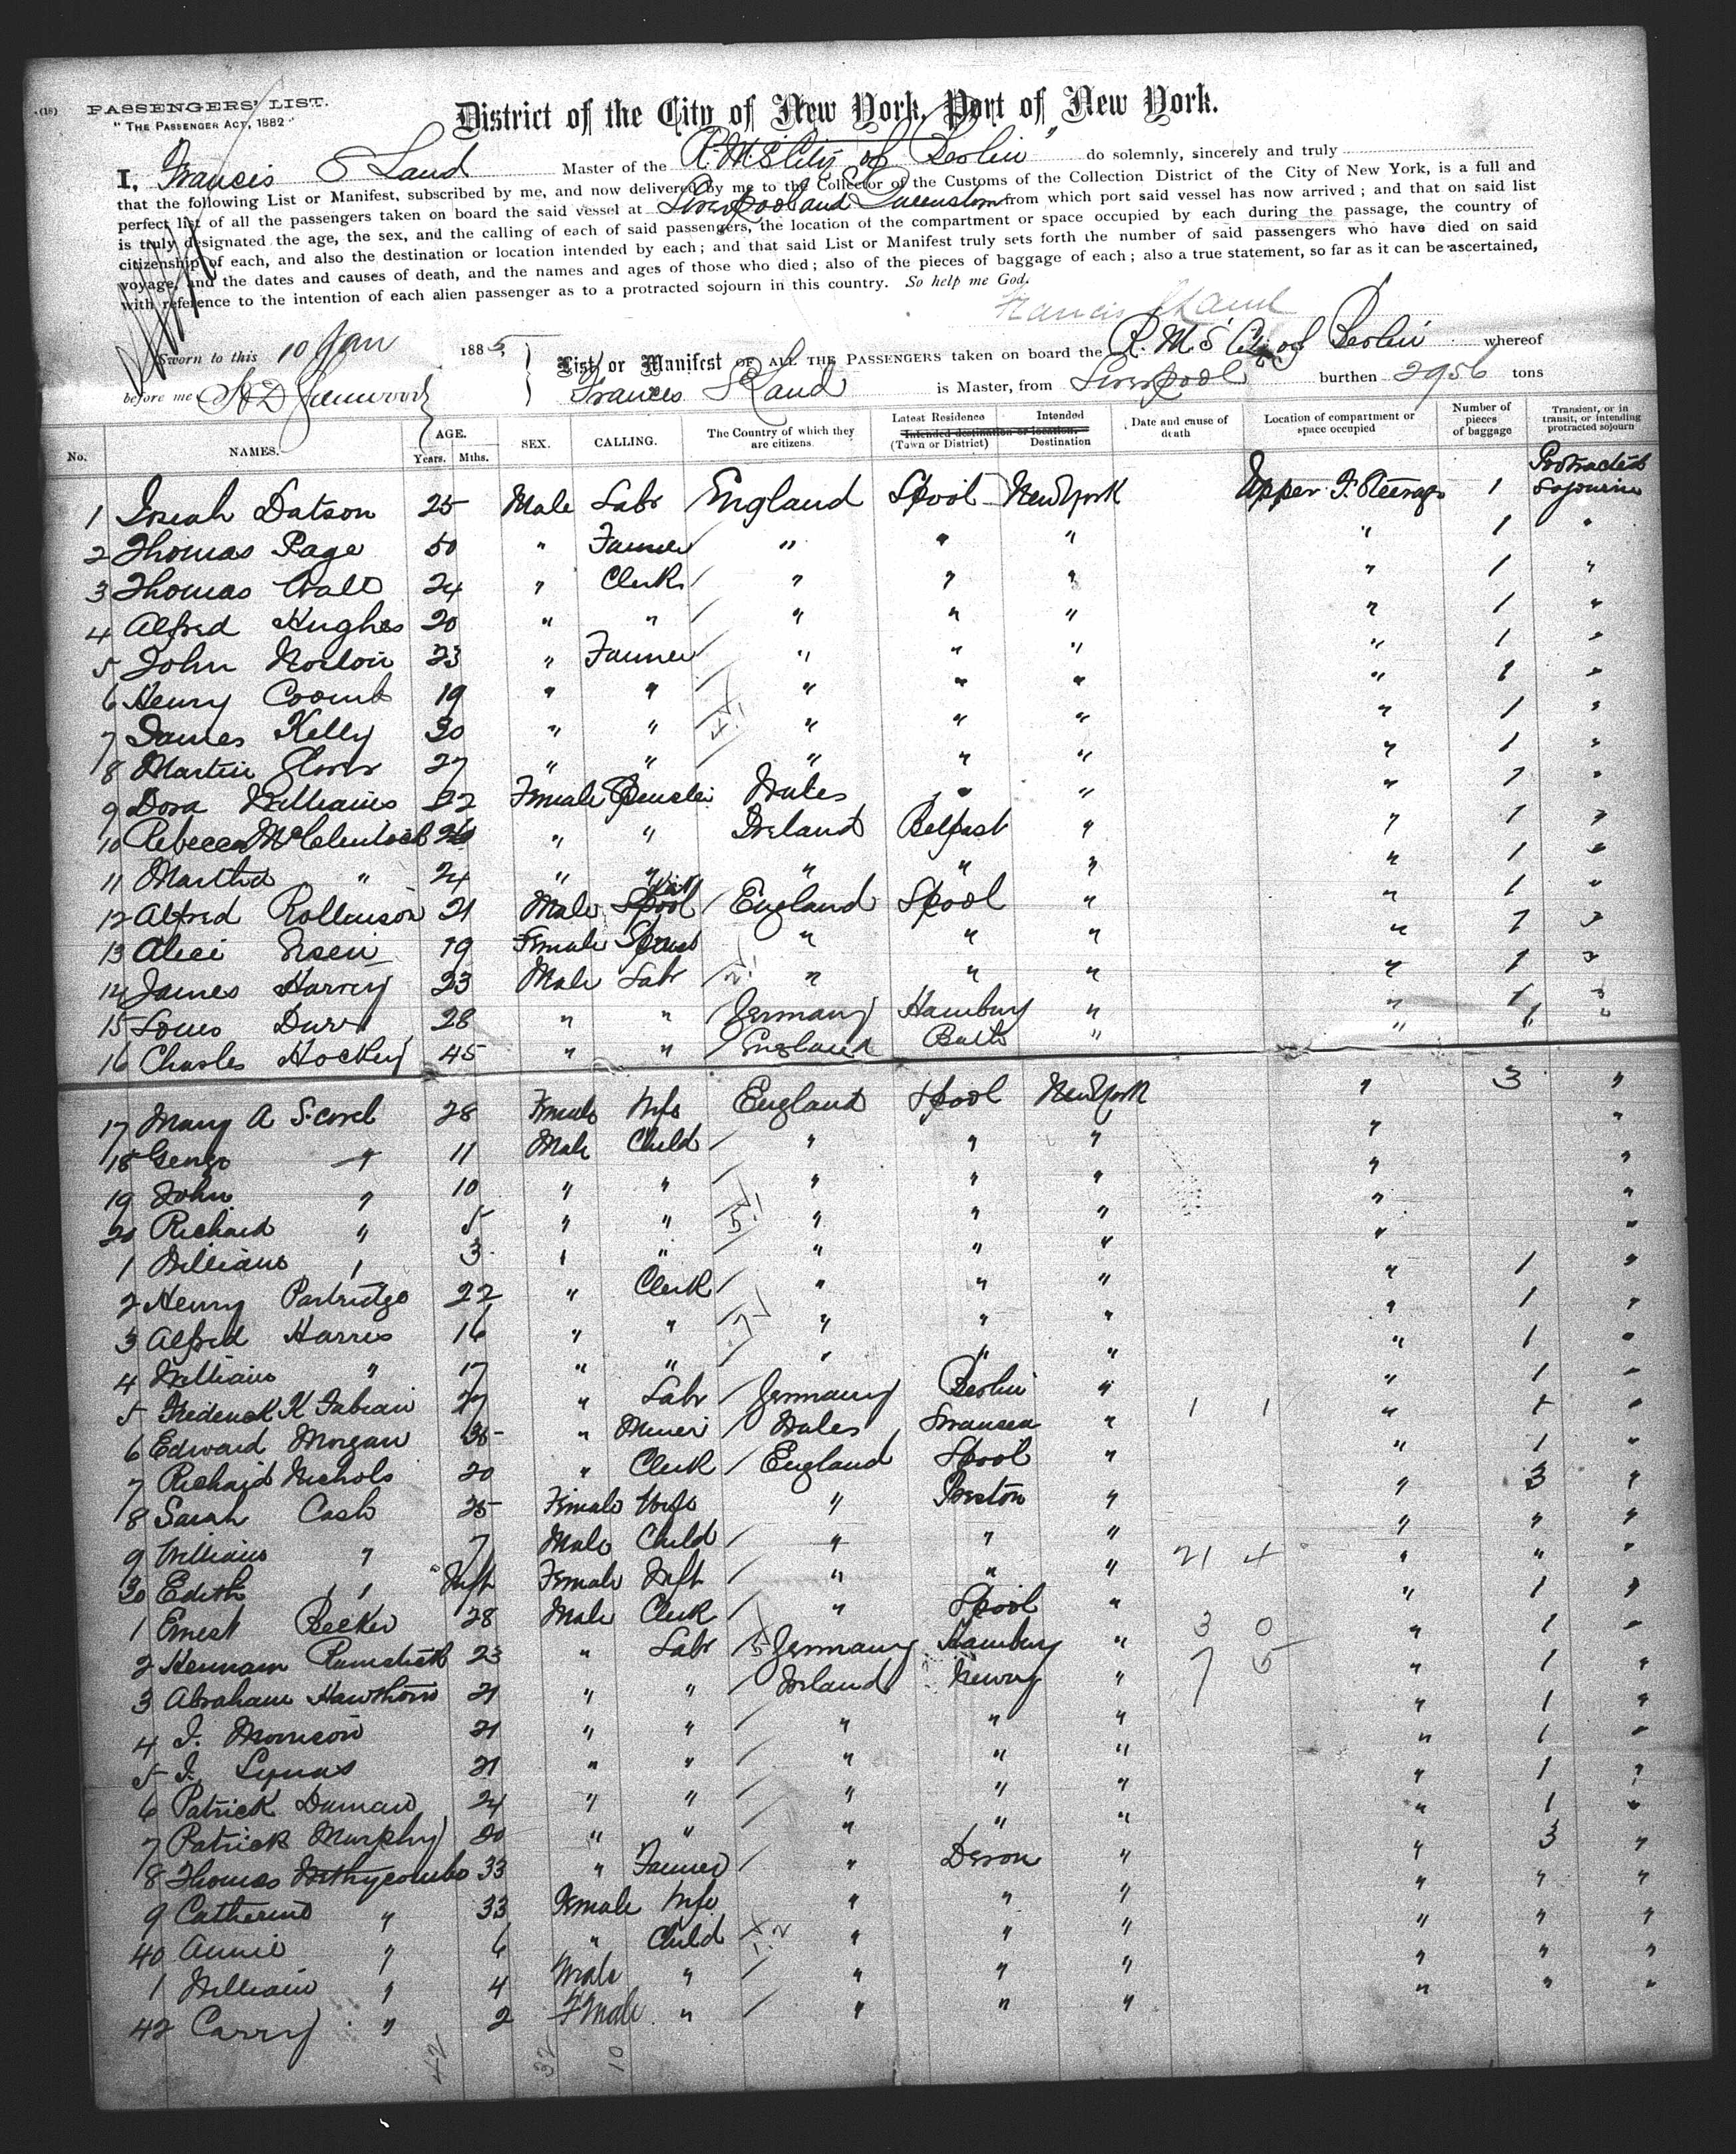 (18) PASSENGERS' LIST.
"THE PASSENGER ACT, 1882"
District of the City of New York, Port of New York.
I, Francis S Land Master of the R.M.S City of Berlin" do solemnly, sincerely and truly
that the following List or Manifest, subscribed by me, and now delivered by me to the Collector of the Customs of the Collection District of the City of New York, is a full and
perfect list of all the passengers taken on board the said vessel at Liverpool and Queenstown from which port said vessel has now arrived; and that on said list
is truly designated the age, the sex, and the calling of each of said passengers, the location of the compartment or space occupied by each during the passage, the country of
citizenship of each, and also the destination or location intended by each; and that said List or Manifest truly sets forth the number of said passengers who have died on said
voyage, and the dates and causes of death, and the names and ages of those who died; also of the pieces of baggage of each; also a true statement, so far as it can be ascertained,
with reference to the intention of each alien passenger as to a protracted sojourn in this country. So help me God.
Francis S Land
Sworn to this 10 Jan 1885
before me
List or Manifest OF ALL THE PASSENGERS taken on board the R.M.S City of Berlin whereof
Frances S Land is Master, from Liverpool burthen 2956 tons
No. NAMES. AGE. Years. Mths. SEX. CALLING. The Country of which they are citizens. Latest Residence Intended destination or location. (Town or District) Intended Destination Date and cause of death Location of compartment or space occupied Number of pieces of baggage Transient, or in transit, or intending protracted sojourn
1 Josiah Datson 25 Male Labr England Lpool New York Upper F. Steerage 1 Protracted Sojourn
2 Thomas Page 50 " Farmer " " " " 1 "
3 Thomas Wall 24 " Clerk " " " " 1 "
4 Alfred Hughes 20 " " " " " " 1 "
5 John Norton 23 " Farmer " " " " 1 "
6 Henry Coomb 19 " " " " " " 1 "
7 James Kelly 30 " " " " " " 1 "
8 Martin Glover 27 " " " " " " 1 "
9 Dora Williams 22 Female Spinster Wales " " " 1 "
10 Rebecca McClentock 26 " " Ireland Belfast " " 1 "
11 Martha " 24 " " " " " " 1 "
12 Alfred Rollinson 21 Male England Lpool " " 1 "
13 19 Female " " " " 1 "
14 James Harvey 23 Male Labr " " " " 1 "
15 Louis 28 " " Germany Hamburg " " 1 "
16 Charles Hockey 45 " " England Bath " " 1 "
17 Mary A 28 Female Wife England Lpool New York " 3 "
18 George " 11 Male Child " " " " "
19 John " 10 " " " " " " "
20 Richard " 5 " " " " " " "
1 William " 3 " " " " " " "
2 Henry Partridge 22 " Clerk " " " " 1 "
3 Alfred Harris 16 " " " " " " 1 "
4 William " 17 " " " " " " 1 "
5 Frederick K Fabian 27 " Labr Germany Berlin " 1 1 " 1 "
6 Edward Morgan 35 " Miner Wales Swansea " " 1 "
7 Richard Nichols 20 " Clerk England Lpool " " 1 "
8 Sarah Cash 25 Female Wife " Preston " " 3 "
9 William " 7 Male Child " " " " " "
30 Edith " Inft Female Inft " " " 21 4 " " "
1 Ernest Becker 28 Male Clerk " Lpool " " 1 "
2 Hermann 23 " Labr Germany Hamburg " 3 0 " 1 "
3 Abraham Hawthorn 21 " " Ireland Newry " 7 5 " 1 "
4 J. Morrison 21 " " " " " " 1 "
5 J. Lynas 21 " " " " " " 1 "
6 Patrick 24 " " " " " " 1 "
7 Patrick Murphy 20 " " " " " " 1 "
8 Thomas Wethycombe 33 " Farmer " Devon " " 3 "
9 Catherine " 33 Female Wife " " " " " "
40 Annie " 6 " Child " " " " " "
1 William " 4 Male " " " " " " "
42 Carry " 2 FMale " " " " " " "
42 32 10